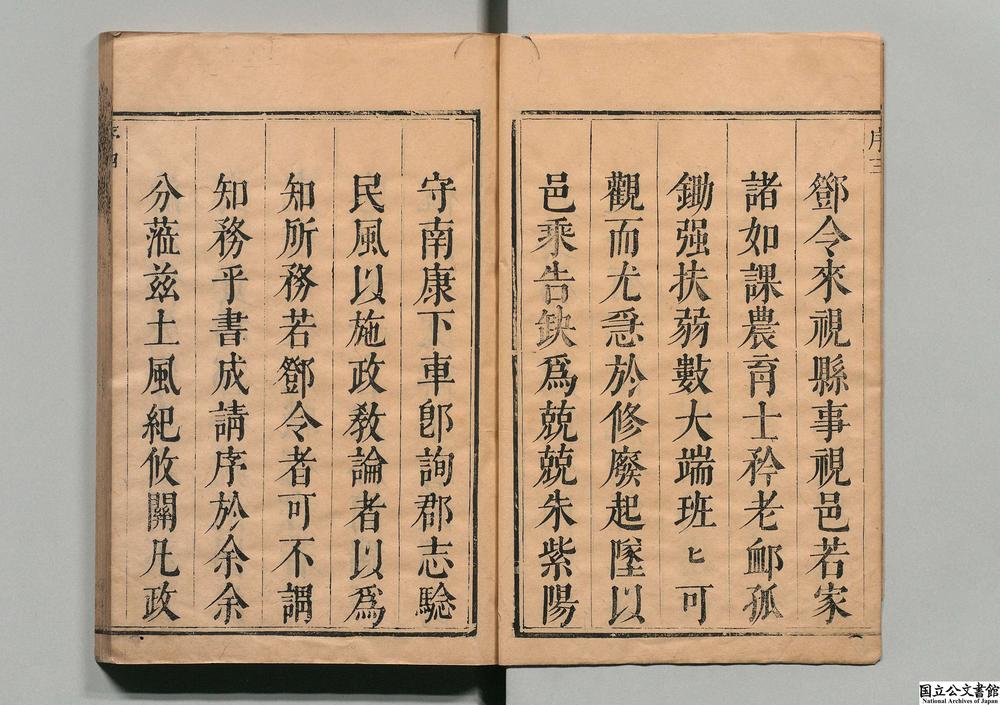 序三
鄧令來視縣事視邑若家
諸如課農育士矜老卹孤
鋤强扶弱數大端班〻可
觀而尤急於修廢起墜以
邑乘告鈌爲兢兢朱紫陽
守南康下車卽詢郡志騐
民風以施政敎論者以爲
知所務若鄧令者可不謂
知務乎書成請序於余余
分蒞兹土風紀攸關凡政
序四
国立公文書館
National Archives of Japan